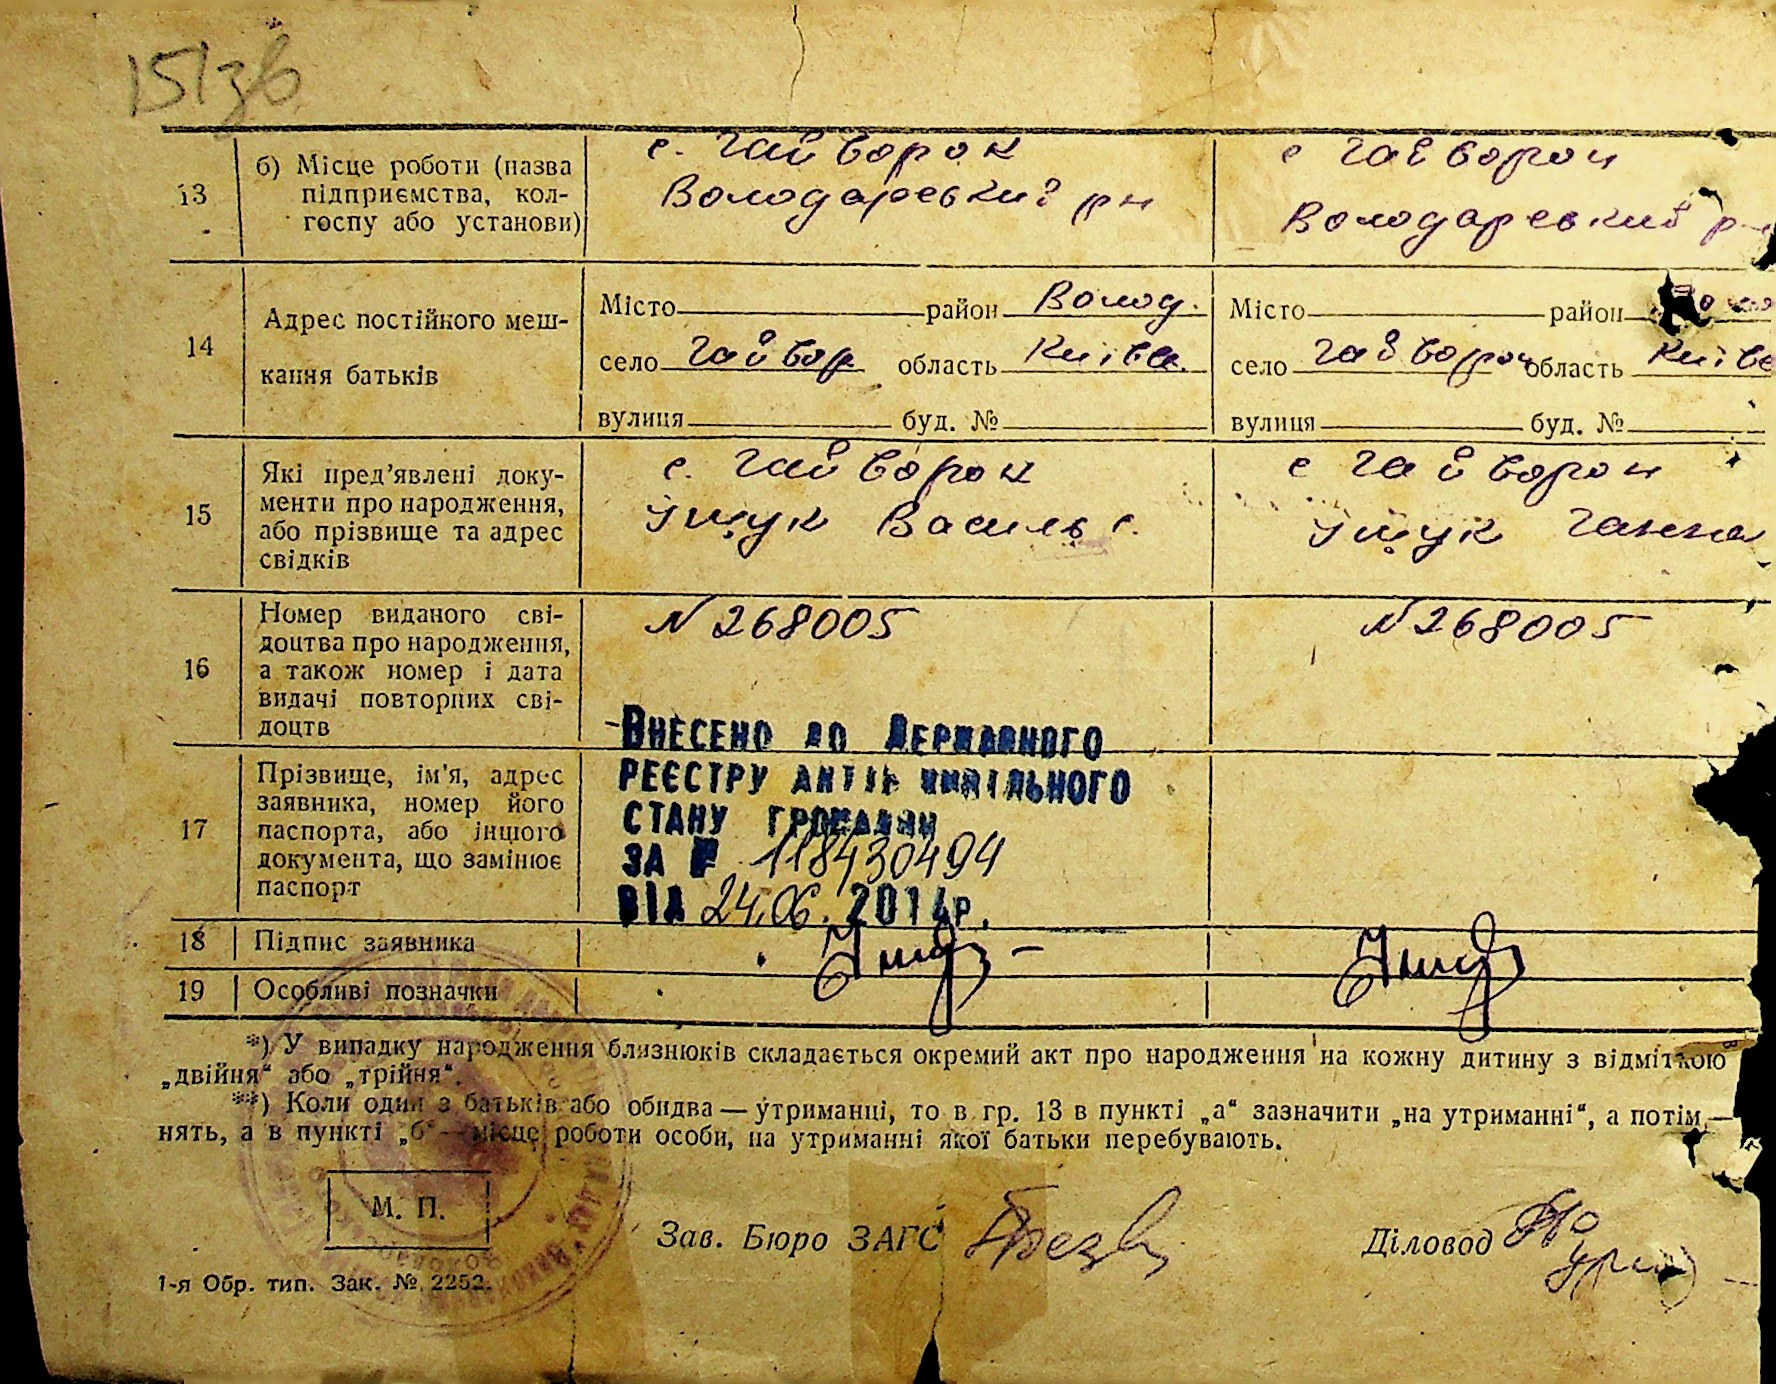 151зв
13
б) Місце роботи (назва
підприємства, кол-
госпу або установи)
с. Гайворон
Володарський рн
с Гайворон
Володарський р
14
Адрес постійного меш-
кання батьків
Місто район Волод.
село Гайвор область Київск.
вулиця буд. №
Місто район
село Гайворон область Київс
вулиця буд. №
15
Які пред'явлені доку-
менти про народження,
або прізвище та адрес
свідків
с. Гайворон
Ущук Василь с.
с Гайворон
Ущук Ганна
16
Номер виданого сві-
доцтва про народження,
а також номер і дата
видачі повторних сві-
доцтв
N 268005
N 268005
17
Прізвище, ім'я, адрес
заявника, номер його
паспорта, або іншого
документа, що замінює
паспорт
ВНЕСЕНО ДО ДЕРЖАВНОГО
РЕЄСТРУ АКТІВ ЦИВІЛЬНОГО
СТАНУ ГРОМАДЯН
ЗА № 118430494
ВІД 24.06. 2014р.
18 Підпис заявника
19 Особливі позначки
*) У випадку народження близнюків складається окремий акт про народження на кожну дитину з відміткою
„двійня“ або „трійня“.
**) Коли один з батьків або обидва — утриманці, то в гр. 13 в пункті „а“ зазначити „на утриманні“, а потім —
нять, а в пункті „б“ — місце роботи особи, на утриманні якої батьки перебувають.
М. П.
Зав. Бюро ЗАГС
Діловод
1-я Обр. тип. Зак. № 2252.